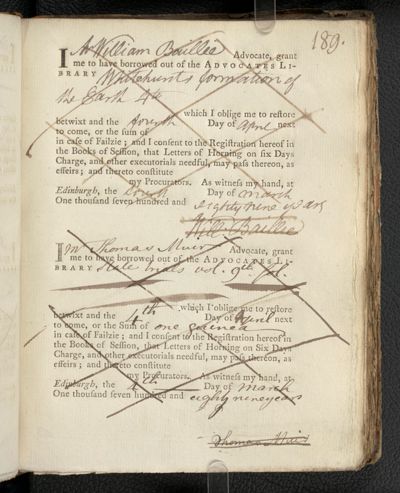 189.
I Mr William Baillie Advocate, grant
me to have borrowed out of the ADVOCATES LI-
BRARY Whitehursts formation of
the Earth 4to
which I oblige me to restore
betwixt and the fourth Day of April next
to come, or the sum of
in case of Failzie; and I consent to the Registration hereof in
the Books of Session, that Letters of Horning on six Days
Charge, and other executorials needful, may pass thereon, as
effeirs; and thereto constitute
my Procurators. As witness my hand, at
Edinburgh, the fourth Day of March
One thousand seven hundred and eighty nine years
Will: Baillie
I Mr Thomas Muir Advocate, grant
me to have borrowed out of the ADVOCATES LI-
BRARY State trials vol. 9th fol.
which I oblige me to restore
betwixt and the 4th Day of April next
to come, or the Sum of one guinea
in case of Failzie; and I consent to the Registration hereof in
the Books of Session, that Letters of Horning on Six Days
Charge, and other executorials needful, may pass thereon, as
effeirs; and thereto constitute
my Procurators. As witness my hand, at
Edinburgh, the 4th Day of March
One thousand seven hundred and eighty nine years
Thomas Muir